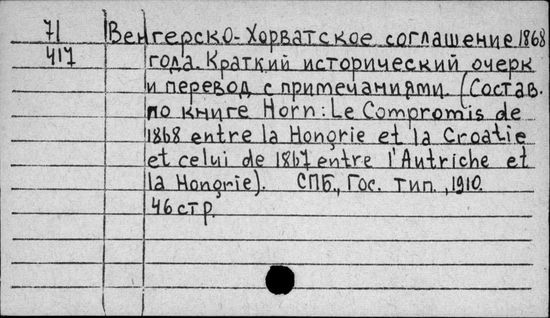 71 Венгерско-Хорватское соглашение 1868
417 года. Краткий исторический очерк
и перевод с примечаниями. (Состав.
по книге Horn: Le Compromis de
1868 entre la Hongrie et la Croatie
et celui de 1867 entre l'Autriche et
la Hongrie). СПБ., Гос. тип., 1910.
46 стр.